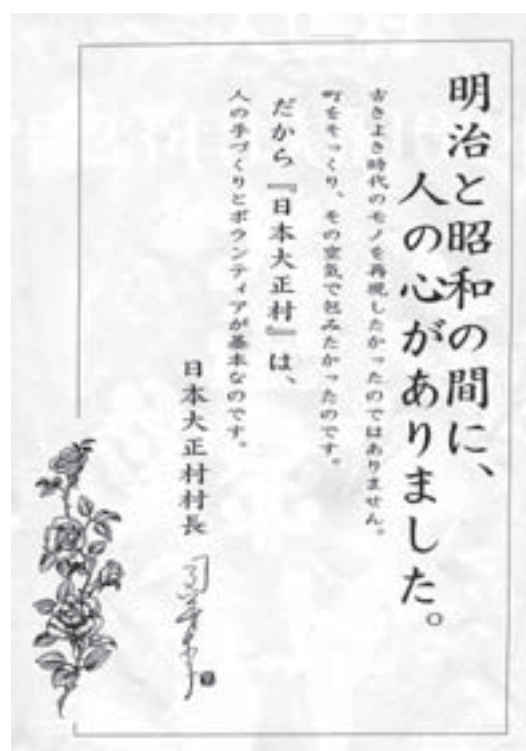 明治と昭和の間に、
人の心がありました。
古きよき時代のモノを再現したかったのではありません。
町をそっくり、その空気で包みたかったのです。
だから『日本大正村』は、
人の手づくりとボランティアが基本なのです。
日本大正村村長